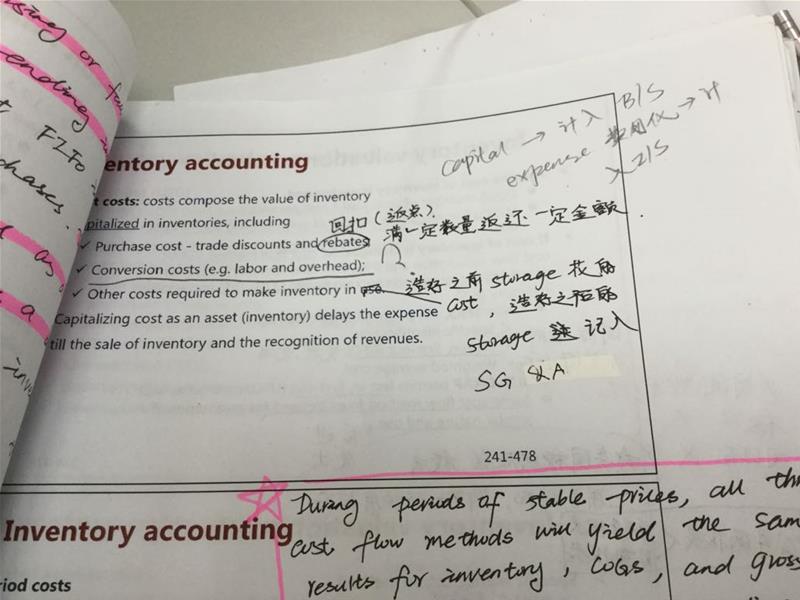 using or
ending
FIFO
chases.
capital → 计入 B/S
expense 费用化 → 计
入 I/S
entory accounting
t costs: costs compose the value of inventory
pitalized in inventories, including
回扣 (返点).
满一定数量返还一定金额.
✓ Purchase cost - trade discounts and rebates
✓ Conversion costs (e.g. labor and overhead);
✓ Other costs required to make inventory in
造好之前 storage 花的
cost, 造好之后的
storage 记入
SG &A
Capitalizing cost as an asset (inventory) delays the expense
till the sale of inventory and the recognition of revenues.
241-478
Inventory accounting
riod costs
During periods of stable prices, all
cost flow methods will yield the sam
results for inventory, COGS, and gross